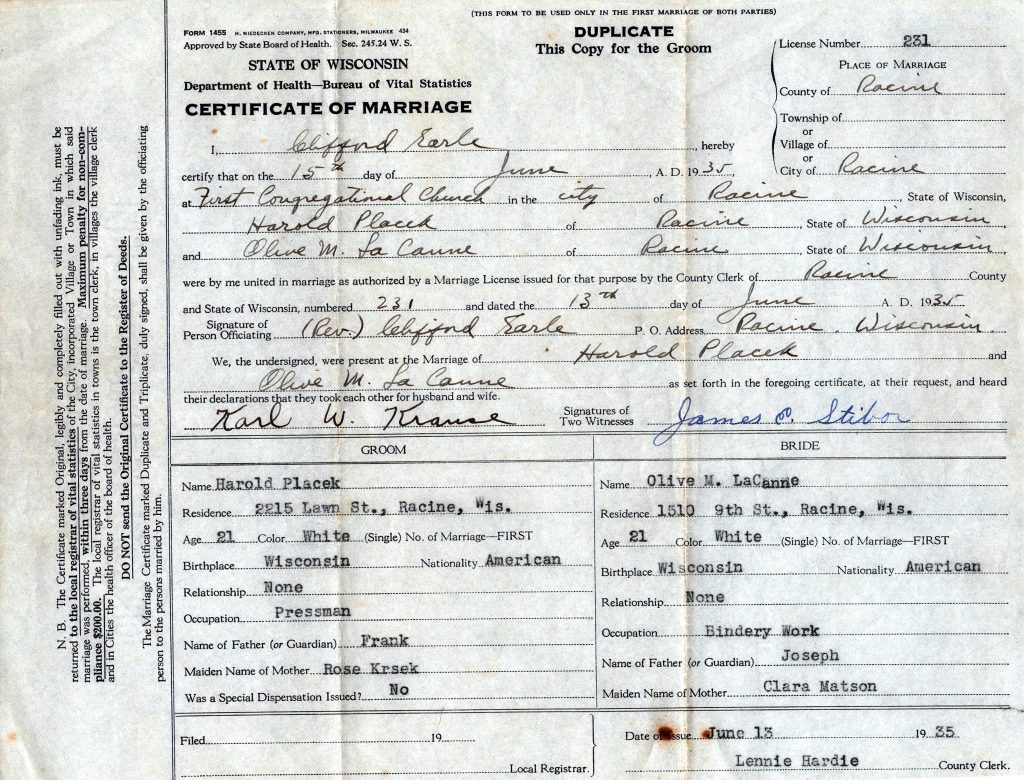 (THIS FORM TO BE USED ONLY IN THE FIRST MARRIAGE OF BOTH PARTIES)
FORM 1455 H. NIEDECKEN COMPANY, MFG. STATIONERS, MILWAUKEE 434
Approved by State Board of Health. Sec. 245.24 W. S.
STATE OF WISCONSIN
Department of Health—Bureau of Vital Statistics
CERTIFICATE OF MARRIAGE
DUPLICATE
This Copy for the Groom
License Number 231
PLACE OF MARRIAGE
County of Racine
Township of
or
Village of
or
City of Racine
I, Clifford Earle, hereby
certify that on the 15th day of June, A. D. 1935,
at First Congregational Church in the city of Racine, State of Wisconsin,
Harold Placek of Racine, State of Wisconsin
and Olive M. La Canne of Racine, State of Wisconsin
were by me united in marriage as authorized by a Marriage License issued for that purpose by the County Clerk of Racine County
and State of Wisconsin, numbered 231 and dated the 13th day of June A. D. 1935
Signature of
Person Officiating (Rev.) Clifford Earle P. O. Address Racine, Wisconsin
We, the undersigned, were present at the Marriage of Harold Placek and
Olive M. La Canne as set forth in the foregoing certificate, at their request, and heard
their declarations that they took each other for husband and wife.
Karl W. Krause Signatures of Two Witnesses James C. Stibor
GROOM
Name Harold Placek
Residence 2215 Lawn St., Racine, Wis.
Age 21 Color White (Single) No. of Marriage—FIRST
Birthplace Wisconsin Nationality American
Relationship None
Occupation Pressman
Name of Father (or Guardian) Frank
Maiden Name of Mother Rose Krsek
Was a Special Dispensation Issued? No
BRIDE
Name Olive M. LaCanne
Residence 1510 9th St., Racine, Wis.
Age 21 Color White (Single) No. of Marriage—FIRST
Birthplace Wisconsin Nationality American
Relationship None
Occupation Bindery Work
Name of Father (or Guardian) Joseph
Maiden Name of Mother Clara Matson
Filed 19
Local Registrar.
Date of Issue June 13 1935
Lennie Hardie County Clerk.
N. B. The Certificate marked Original, legibly and completely filled out with unfading ink, must be
returned to the local registrar of vital statistics of the City, incorporated Village or Town in which said
marriage was performed, within three days from the date of marriage. Maximum penalty for non-com-
pliance $200.00. The local registrar of vital statistics in towns is the town clerk, in villages the village clerk
and in Cities the health officer of the board of health.
DO NOT send the Original Certificate to the Register of Deeds.
The Marriage Certificate marked Duplicate and Triplicate, duly signed, shall be given by the officiating
person to the persons married by him.